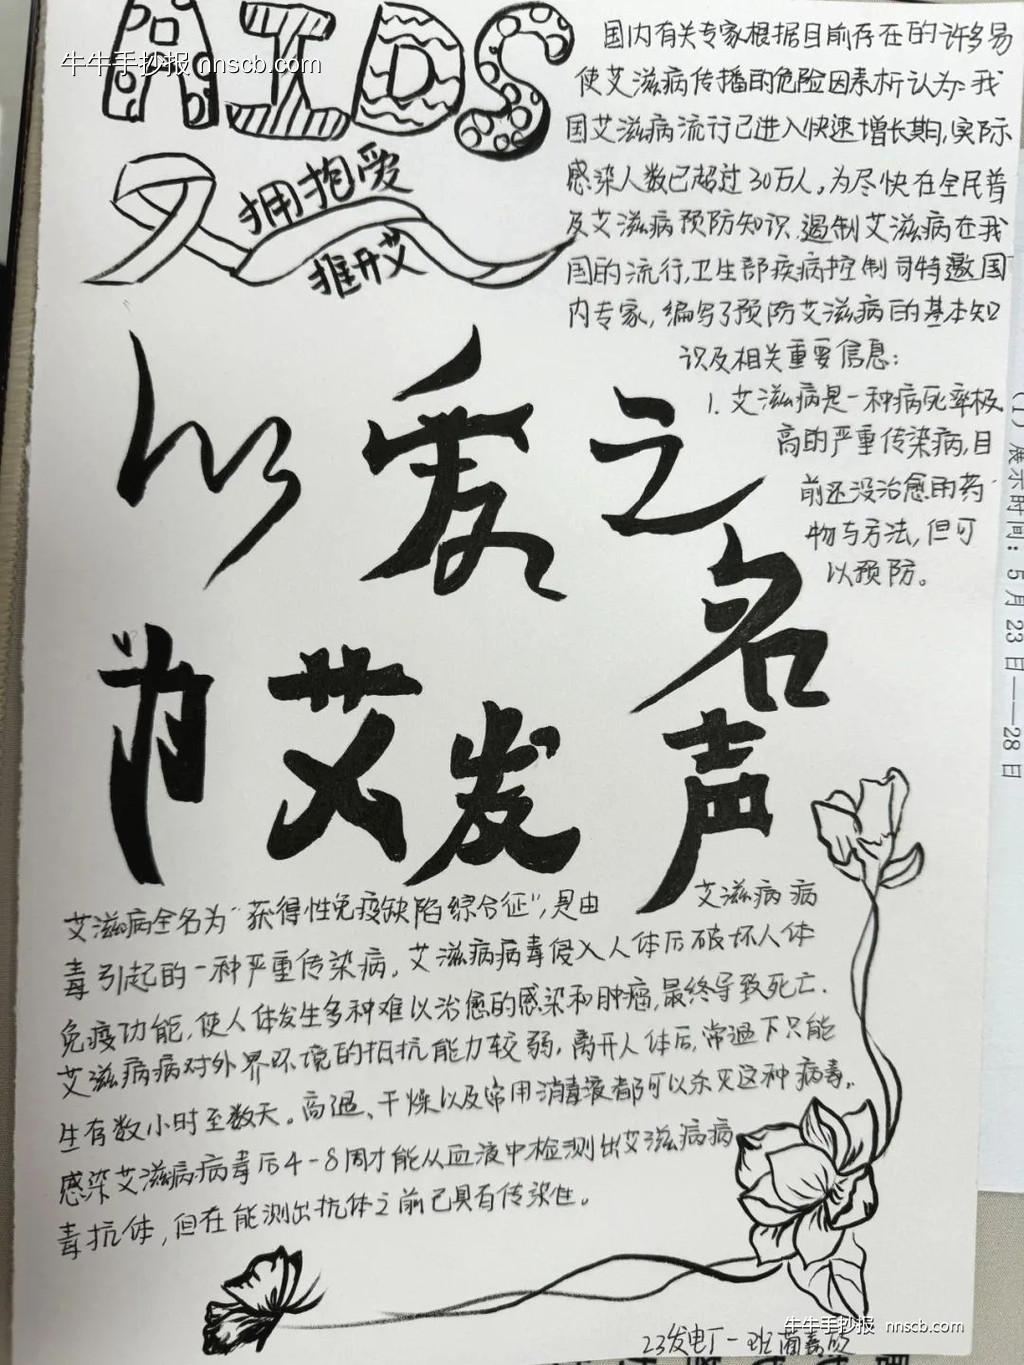 牛牛手抄报 nnscb.com
AIDS
拥抱爱
推开艾
国内有关专家根据目前存在的许多易
使艾滋病传播的危险因素析认为:我
国艾滋病流行已进入快速增长期,实际
感染人数已超过30万人。为尽快在全民普
及艾滋病预防知识,遏制艾滋病在我
国的流行,卫生部疾病控制司特邀国
内专家,编写了预防艾滋病的基本知
识及相关重要信息:
1. 艾滋病是一种病死率极
高的严重传染病,目
前还没治愈的药
物与方法,但可
以预防。
以爱之名
为艾发声
艾滋病全名为“获得性免疫缺陷综合征”,是由 艾滋病病
毒引起的一种严重传染病。艾滋病病毒侵入人体后破坏人体
免疫功能,使人体发生多种难以治愈的感染和肿瘤,最终导致死亡.
艾滋病病对外界环境的抵抗能力较弱,离开人体后,常温下只能
生存数小时至数天。高温、干燥以及常用消毒液都可以杀灭这种病毒。
感染艾滋病病毒后4-8周才能从血液中检测出艾滋病病
毒抗体,但在能测出抗体之前已具有传染性。
23发电厂一班
(1)展示时间:5月23日——28日
牛牛手抄报 nnscb.com